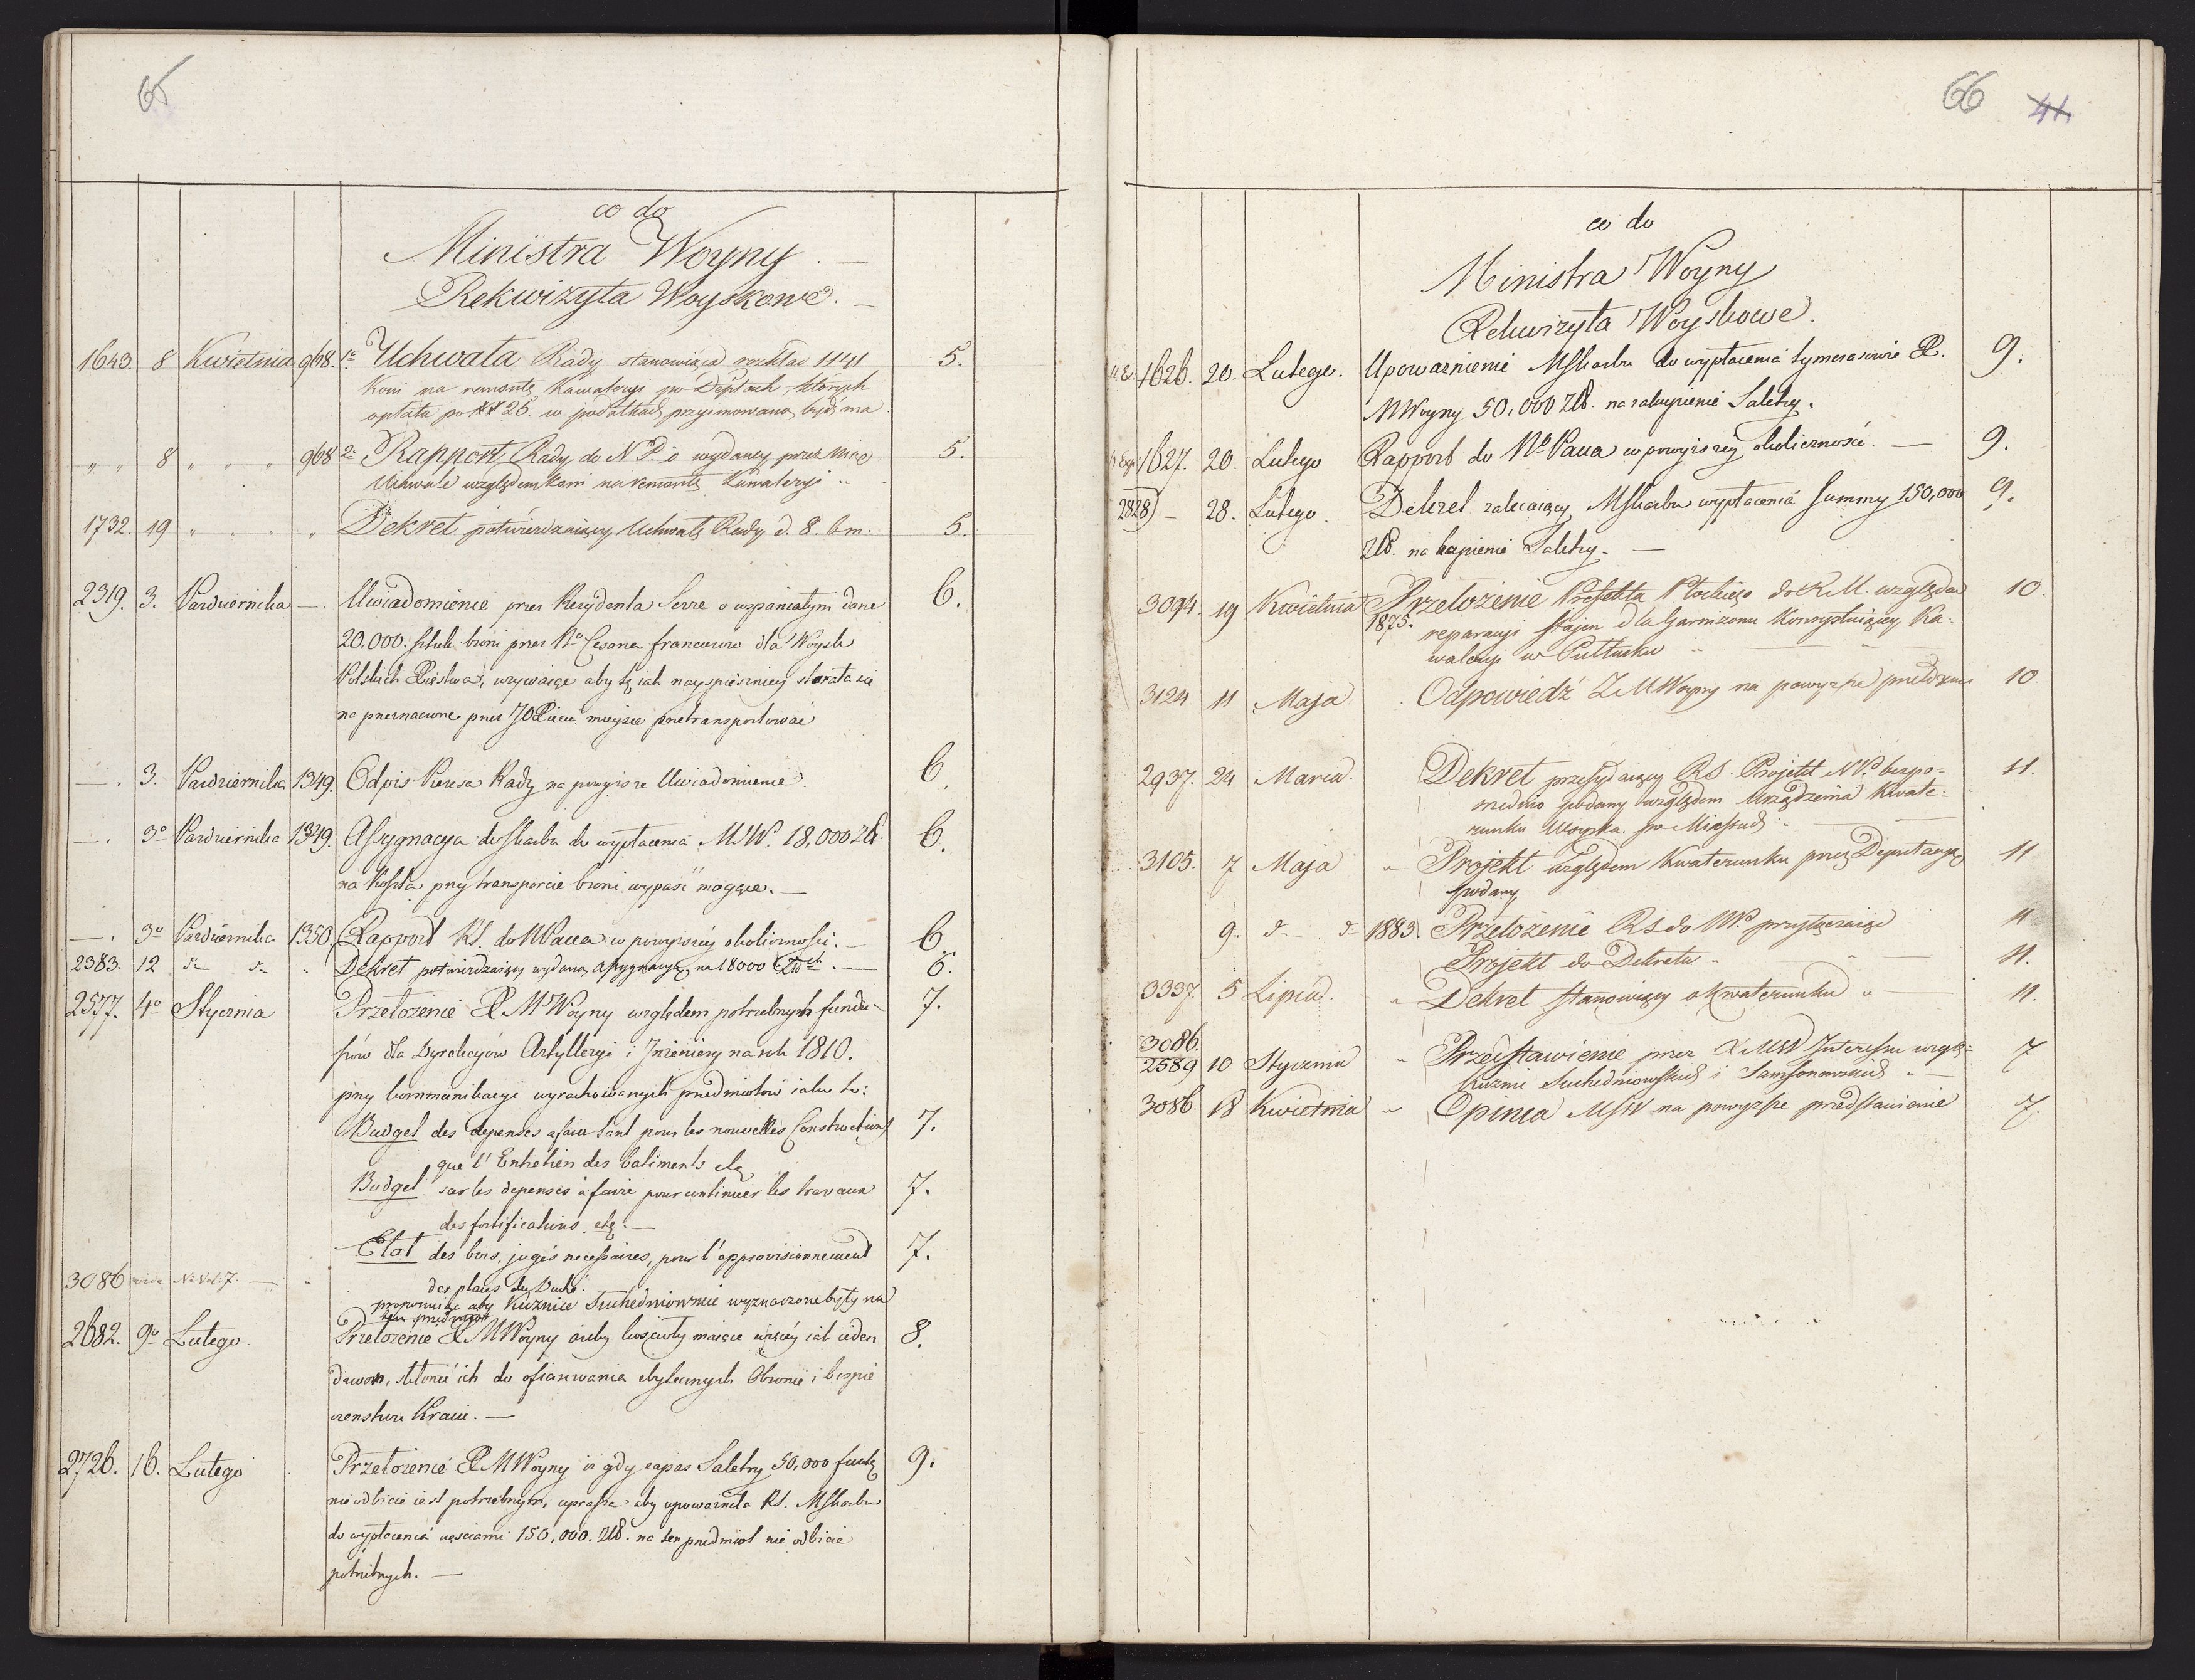 65
co do
Ministra Woyny. —
Rekwizyta Woyskowe. —
1643. 8 Kwietnia 968. 1e Uchwała Rady stanowiąca rozkład 1141 5.
Koni na remontę Kawaleryi po Deptach, których
opłata po 26. w podatkach przyimowaną bydź ma
" " 8 " " " 968 2e Rapport Rady do N. P. o wydaney przez nię 5.
Uchwale względem Koni na remontę Kawaleryi "
1732. 19 " " " Dekret potwierdzaiący Uchwałę Rady d. 8. bm. 5.
2319. 3. Pazdziernika — Uwiadomienie przez Rezydenta Serre o wspaniałym darze 6.
20,000. sztuk broni przez No Cesarza francuzow dla Woysk
Polskich Xięstwa, wzywaiąc aby tę iak nayspieszniey starała się
na przeznaczone przez JO Xiecia mieysce przetransportować
— . 3. Pazdziernika 1349. Odpis Prezesa Rady na powyższe Uwiadomienie. 6.
— . 3o Pazdziernika 1349. Assygnacya do Skarbu do wypłacenia MW. 18,000 Zł. 6.
na koszta przy transporcie broni wypaść mogące. —
— . 3o Pazdziernika 1350. Rapport RS. do NPana w powyższey okoliczności. — 6.
2383. 12 d— d— " Dekret potwierdzaiący wydaną assygnacyę na 18000 Złch. — 6.
2577. 4o Stycznia Przełożenie X MWoyny względem potrzebnych fundu- 7.
szów dla Dyrekcyów Artylleryi i Inżeniery na rok 1810.
przy kommunikacyi wyrachowanych przedmiotów iako to:
Budget des depenses a faire tant pour les nouvelles Constructions 7.
que l'Entretien des batiments etc
Budget sur les depenses à faire pour continuer les travaux 7.
des fortifications etc. —
Etat des bois, jugés necessaires, pour l'approvisionnement 7.
3086 vide No Vol: 7. — " des places du Duché.
proponuiąc aby Kuznice Suchedniowskie wyznaczone były na
ten przedmiot
2682. 9o Lutego. Przełożenie X MWoyny ażeby kościoły maiące więcéy iak ieden 8.
dzwon, skłonić ich do ofiarowania zbytecznych Obronie i bezpie
czenstwu Kraiu. —
2726. 16. Lutego Przełożenie X MWoyny iż gdy zapas Saletry 50,000 funtó 9.
nieodbicie iest potrzebnym, uprasza aby upoważniła RS. MSkarbu
do wypłacenia częściami 150,000. Złł. na ten przedmiot nie odbicie
potrzebnych. —
66 41.
co do
Ministra Woyny
Rekwizyta Woyskowe.
1626. 20. Lutego. Upoważnienie MSkarbu do wypłacenia tymczasowie X. 9.
MWoyny 50,000 Złł. na zakupienie Saletry.
1627. 20. Lutego Rapport do No Pana w powyższey okoliczności. — 9.
2828 — 28. Lutego. Dekret zalecaiący MSkarbu wypłacenia Summy 150,000 9.
Złł. na kupienie Saletry. —
3094. 19 Kwietnia Przełożenie Prefekta Płockiego do R.M. względem 10.
1875. reparacyi stajen dla Garnizonu Konsystuiącey Ka-
waleryi w Pułtusku " —
3124 11 Maja . Odpowiedź ZMWoyny na powyższe przełożenie 10.
2937. 24 Marca. Dekret przesyłaiący RS. Projekt NPu bezpo- 11.
średnio podany względem Urządzenia kwate-
runku Woyska po Miastach " —
3105. 7 Maja " Projekt względem Kwaterunku przez Deputacyą 11
podany
9. d— d— 1883. Przełożenie RS do NPa przyłączaiące 11
Projekt do Dekretu — 11.
3337. 5 Lipca. " Dekret stanowiący o kwaterunku " — 11.
3086.
2589 10 Stycznia " Przedstawienie przez X MSW Interessu wzglę: 7
Kuznic Suchedniowskich i Samsonowskich " —
3086. 18 Kwietnia " Opinia MSW na powyższe przedstawienie 7.